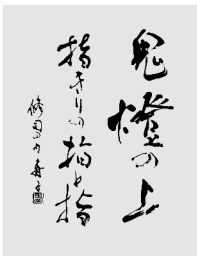 鬼燈の上
指きりの指と指